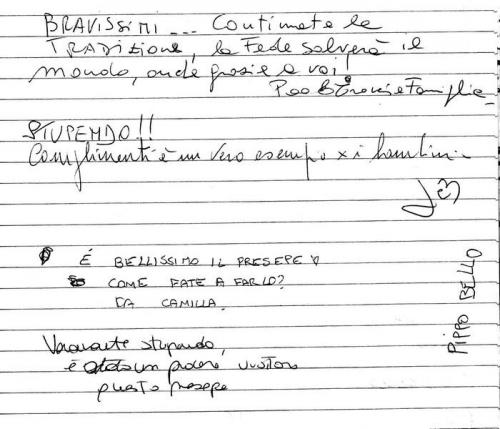 BRAVISSIMI ... Continuate la
TRADIZIONE, la Fede salverà il
mondo, anche grazie a voi!
Famiglia
STUPENDO!!
Complimenti è un vero esempio x i bambini.
È BELLISSIMO IL PRESEPE
COME FATE A FARLO?
DA CAMILLA.
PIPPO BELLO
Veramente stupendo,
è stato un piacere visitare
questo presepe